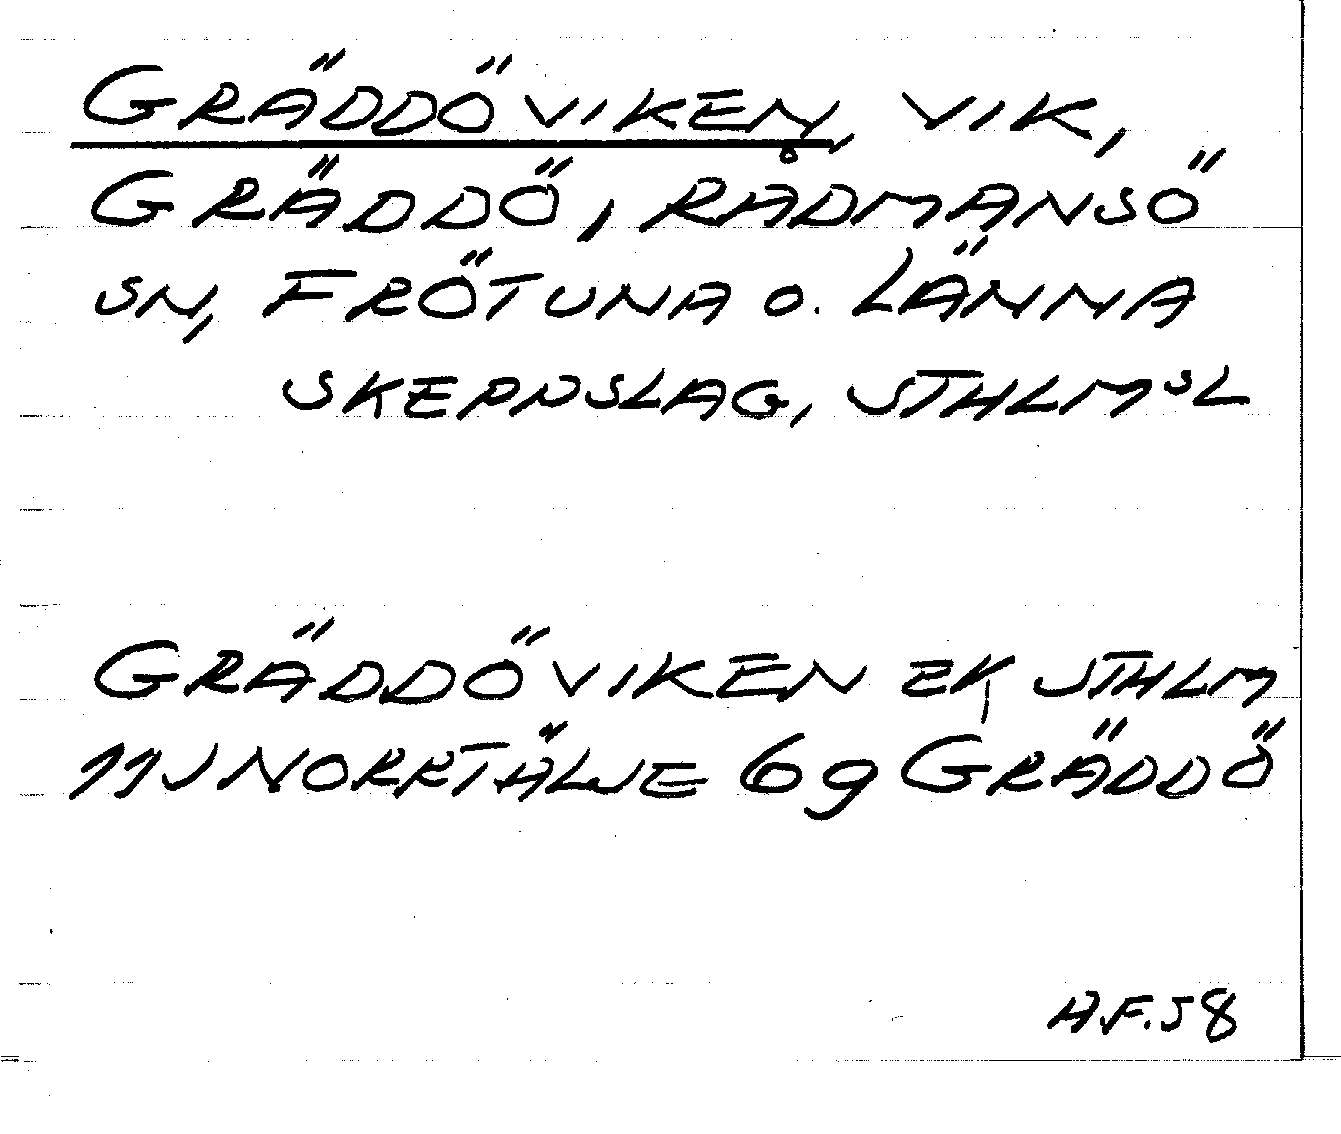 GRÄDDÖVIKEN, VIK,
GRÄDDÖ, RÅDMANSÖ
SN, FRÖTUNA O. LÄNNA
SKEPPSLAG, STHLMSL
GRÄDDÖVIKEN EK STHLM
11J NORRTÄLJE 6g GRÄDDÖ
A.F.58